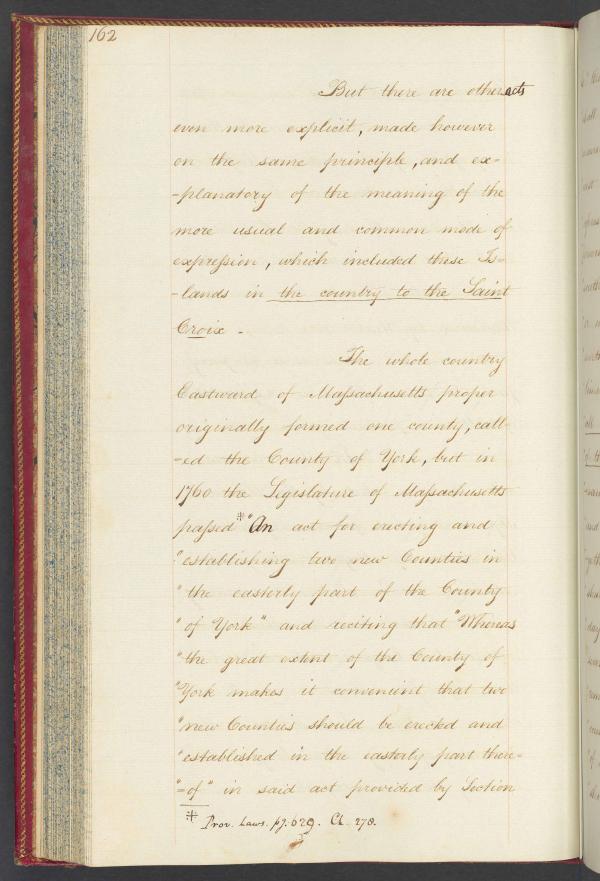 162
But there are other acts
even more explicit, made however
on the same principle, and ex-
-planatory of the meaning of the
more usual and common mode of
expression, which included these Is-
-lands in the country to the Saint
Croix -
The whole country
Eastward of Massachusetts proper
originally formed one county, call-
-ed the County of York, but in
1760 the Legislature of Massachusetts
passed * "An act for erecting and
"establishing two new Counties in
"the easterly part of the County
"of York" and reciting that "Whereas
"the great extent of the County of
"York makes it convenient that two
"new Counties should be erected and
"established in the easterly part there-
"-of" in said act provided by Section
* Prov. Laws. pg. 629. Ch. 278.